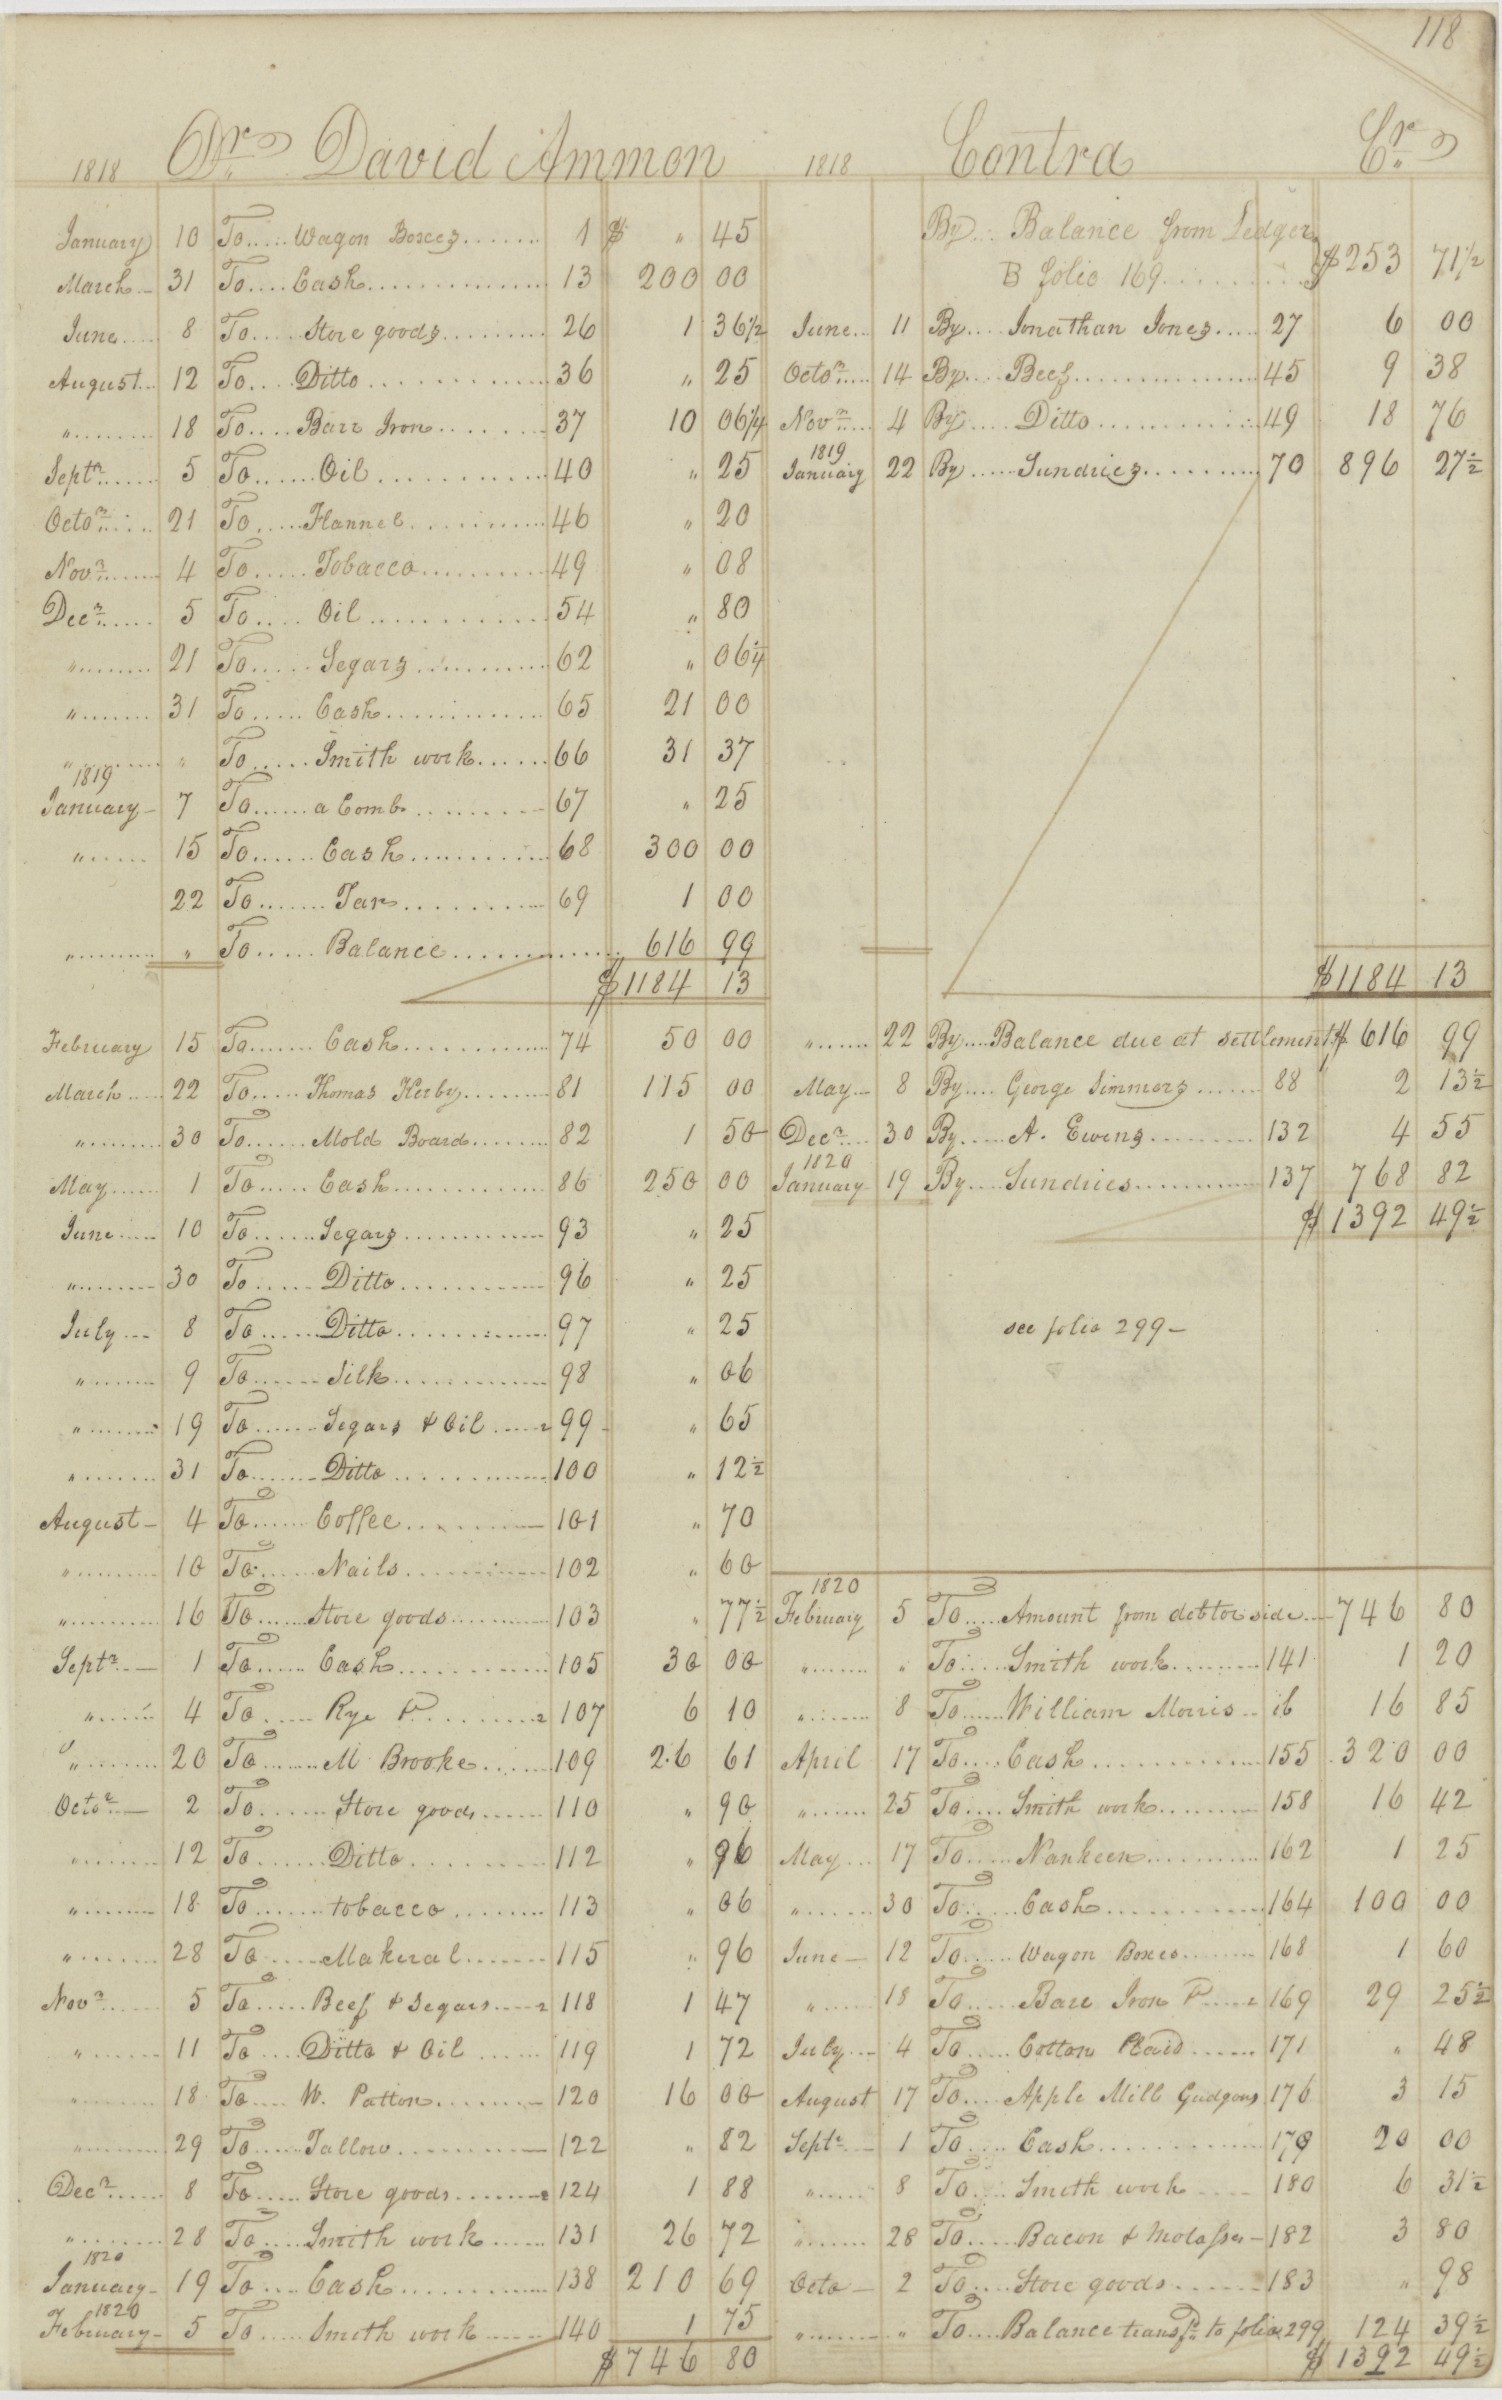 118
1818 Dr. David Ammon
January 10 To..... Wagon Boxes....... 1 $ " 45
March 31 To.... Cash............... 13 200 00
June.... 8 To..... Store goods......... 26 1 36 1/2
August... 12 To.... Ditto............. 36 " 25
"......... 18 To.... Barr Iron........ 37 10 06 1/4
Septr...... 5 To...... Oil............ 40 " 25
Octor..... 21 To..... Flannel.......... 46 " 20
Novr...... 4 To..... Tobacco.......... 49 " 08
Decr...... 5 To.... Oil............ 54 " 80
"......... 21 To..... Segars.......... 62 " 06 1/4
"........ 31 To..... Cash............ 65 21 00
"......... " To..... Smith work...... 66 31 37
1819
January 7 To...... a Comb......... 67 " 25
"...... 15 To...... Cash........... 68 300 00
22 To....... Tar.......... 69 1 00
"......... " To...... Balance............... 616 99
$1184 13
February 15 To....... Cash............. 74 50 00
March..... 22 To..... Thomas Kerby........ 81 115 00
"......... 30 To...... Mold Board........ 82 1 50
May...... 1 To..... Cash............. 86 250 00
June..... 10 To...... Segars............ 93 " 25
"......... 30 To..... Ditto............ 96 " 25
July ... 8 To..... Ditto............ 97 " 25
"........ 9 To...... Silk............. 98 " 06
"........ 19 To...... Segars & Oil ..... 99 " 65
"........ 31 To....... Ditto............ 100 " 12 1/2
August 4 To..... Coffee.......... 101 " 70
"......... 10 To..... Nails.......... 102 " 60
"......... 16 To..... Store goods.......... 103 " 77 1/2
Septr. 1 To..... Cash............ 105 30 00
"...... 4 To.... Rye &......... 107 6 10
"........ 20 To....... M Brooke...... 109 26 61
Octor. 2 To...... Store goods...... 110 " 90
"........ 12 To...... Ditto......... 112 " 96
"........ 18 To...... tobacco......... 113 " 06
"........ 28 To..... Makeral....... 115 " 96
Novr...... 5 To..... Beef & Segars.... 118 1 47
"........ 11 To.... Ditto & Oil ...... 119 1 72
"........ 18 To.... W. Patton......... 120 16 00
"......... 29 To..... Tallow........... 122 " 82
Decr..... 8 To..... Store goods........ 124 1 88
"......... 28 To..... Smith work ...... 131 26 72
1820
January 19 To.... Cash............. 138 210 69
1820
February 5 To..... Smith work ...... 140 1 75
$746 80
1818 Contra Cr.
By... Balance from Ledger
B folio 169.......... $253 71 1/2
June... 11 By.... Jonathan Jones..... 27 6 00
Octor..... 14 By.... Beef............... 45 9 38
Novr.... 4 By..... Ditto............ 49 18 76
1819
January 22 By..... Sundries.......... 70 896 27 1/2
$1184 13
"...... 22 By.... Balance due at settlement $616 99
May 8 By.... George Simmers ...... 88 2 13 1/2
Decr.... 30 By..... A. Ewing.......... 132 4 55
1820
January 19 By.... Sundries............ 137 768 82
$1392 49 1/2
see folio 299
1820
February 5 To..... Amount from debtor side... 746 80
"....... " To..... Smith work......... 141 1 20
"....... 8 To..... William Morris.. ib 16 85
April 17 To.... Cash............. 155 320 00
"...... 25 To.... Smith work.......... 158 16 42
May... 17 To.... Nankeen.......... 162 1 25
"...... 30 To.... Cash............. 164 100 00
June 12 To..... Wagon Boxes........ 168 1 60
"...... 18 To.... Barr Iron &..... 169 29 25 1/2
July 4 To.... Cotton Plaid....... 171 " 48
August 17 To.... Apple Mill Gudgons 176 3 15
Septr. 1 To.... Cash............. 179 20 00
"..... 8 To.... Smith work .... 180 6 31 1/2
"..... 28 To..... Bacon & Molasses 182 3 80
Octo 2 To.... Store goods....... 183 " 98
"......... " To.... Balance transfd. to folio 299 124 39 1/2
$1392 49 1/2